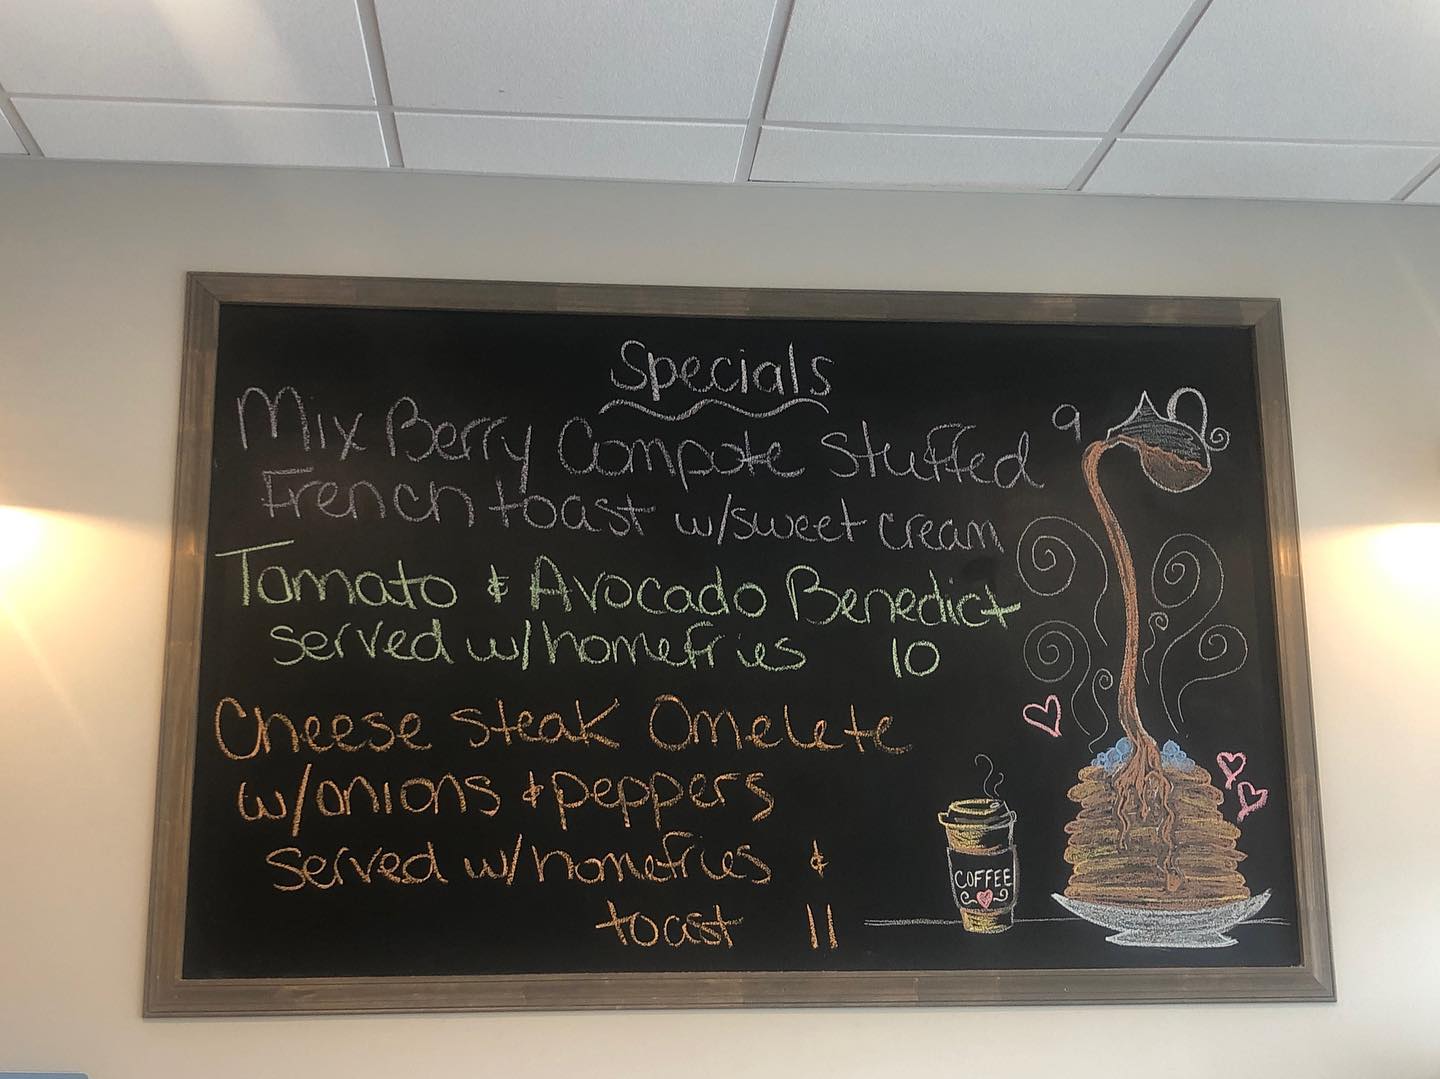 Specials
Mix Berry Compote Stuffed 9
French toast w/sweet cream
Tomato & Avocado Benedict
served w/homefries 10
Cheese steak Omelete
w/onions & peppers
served w/homefries &
toast 11
COFFEE